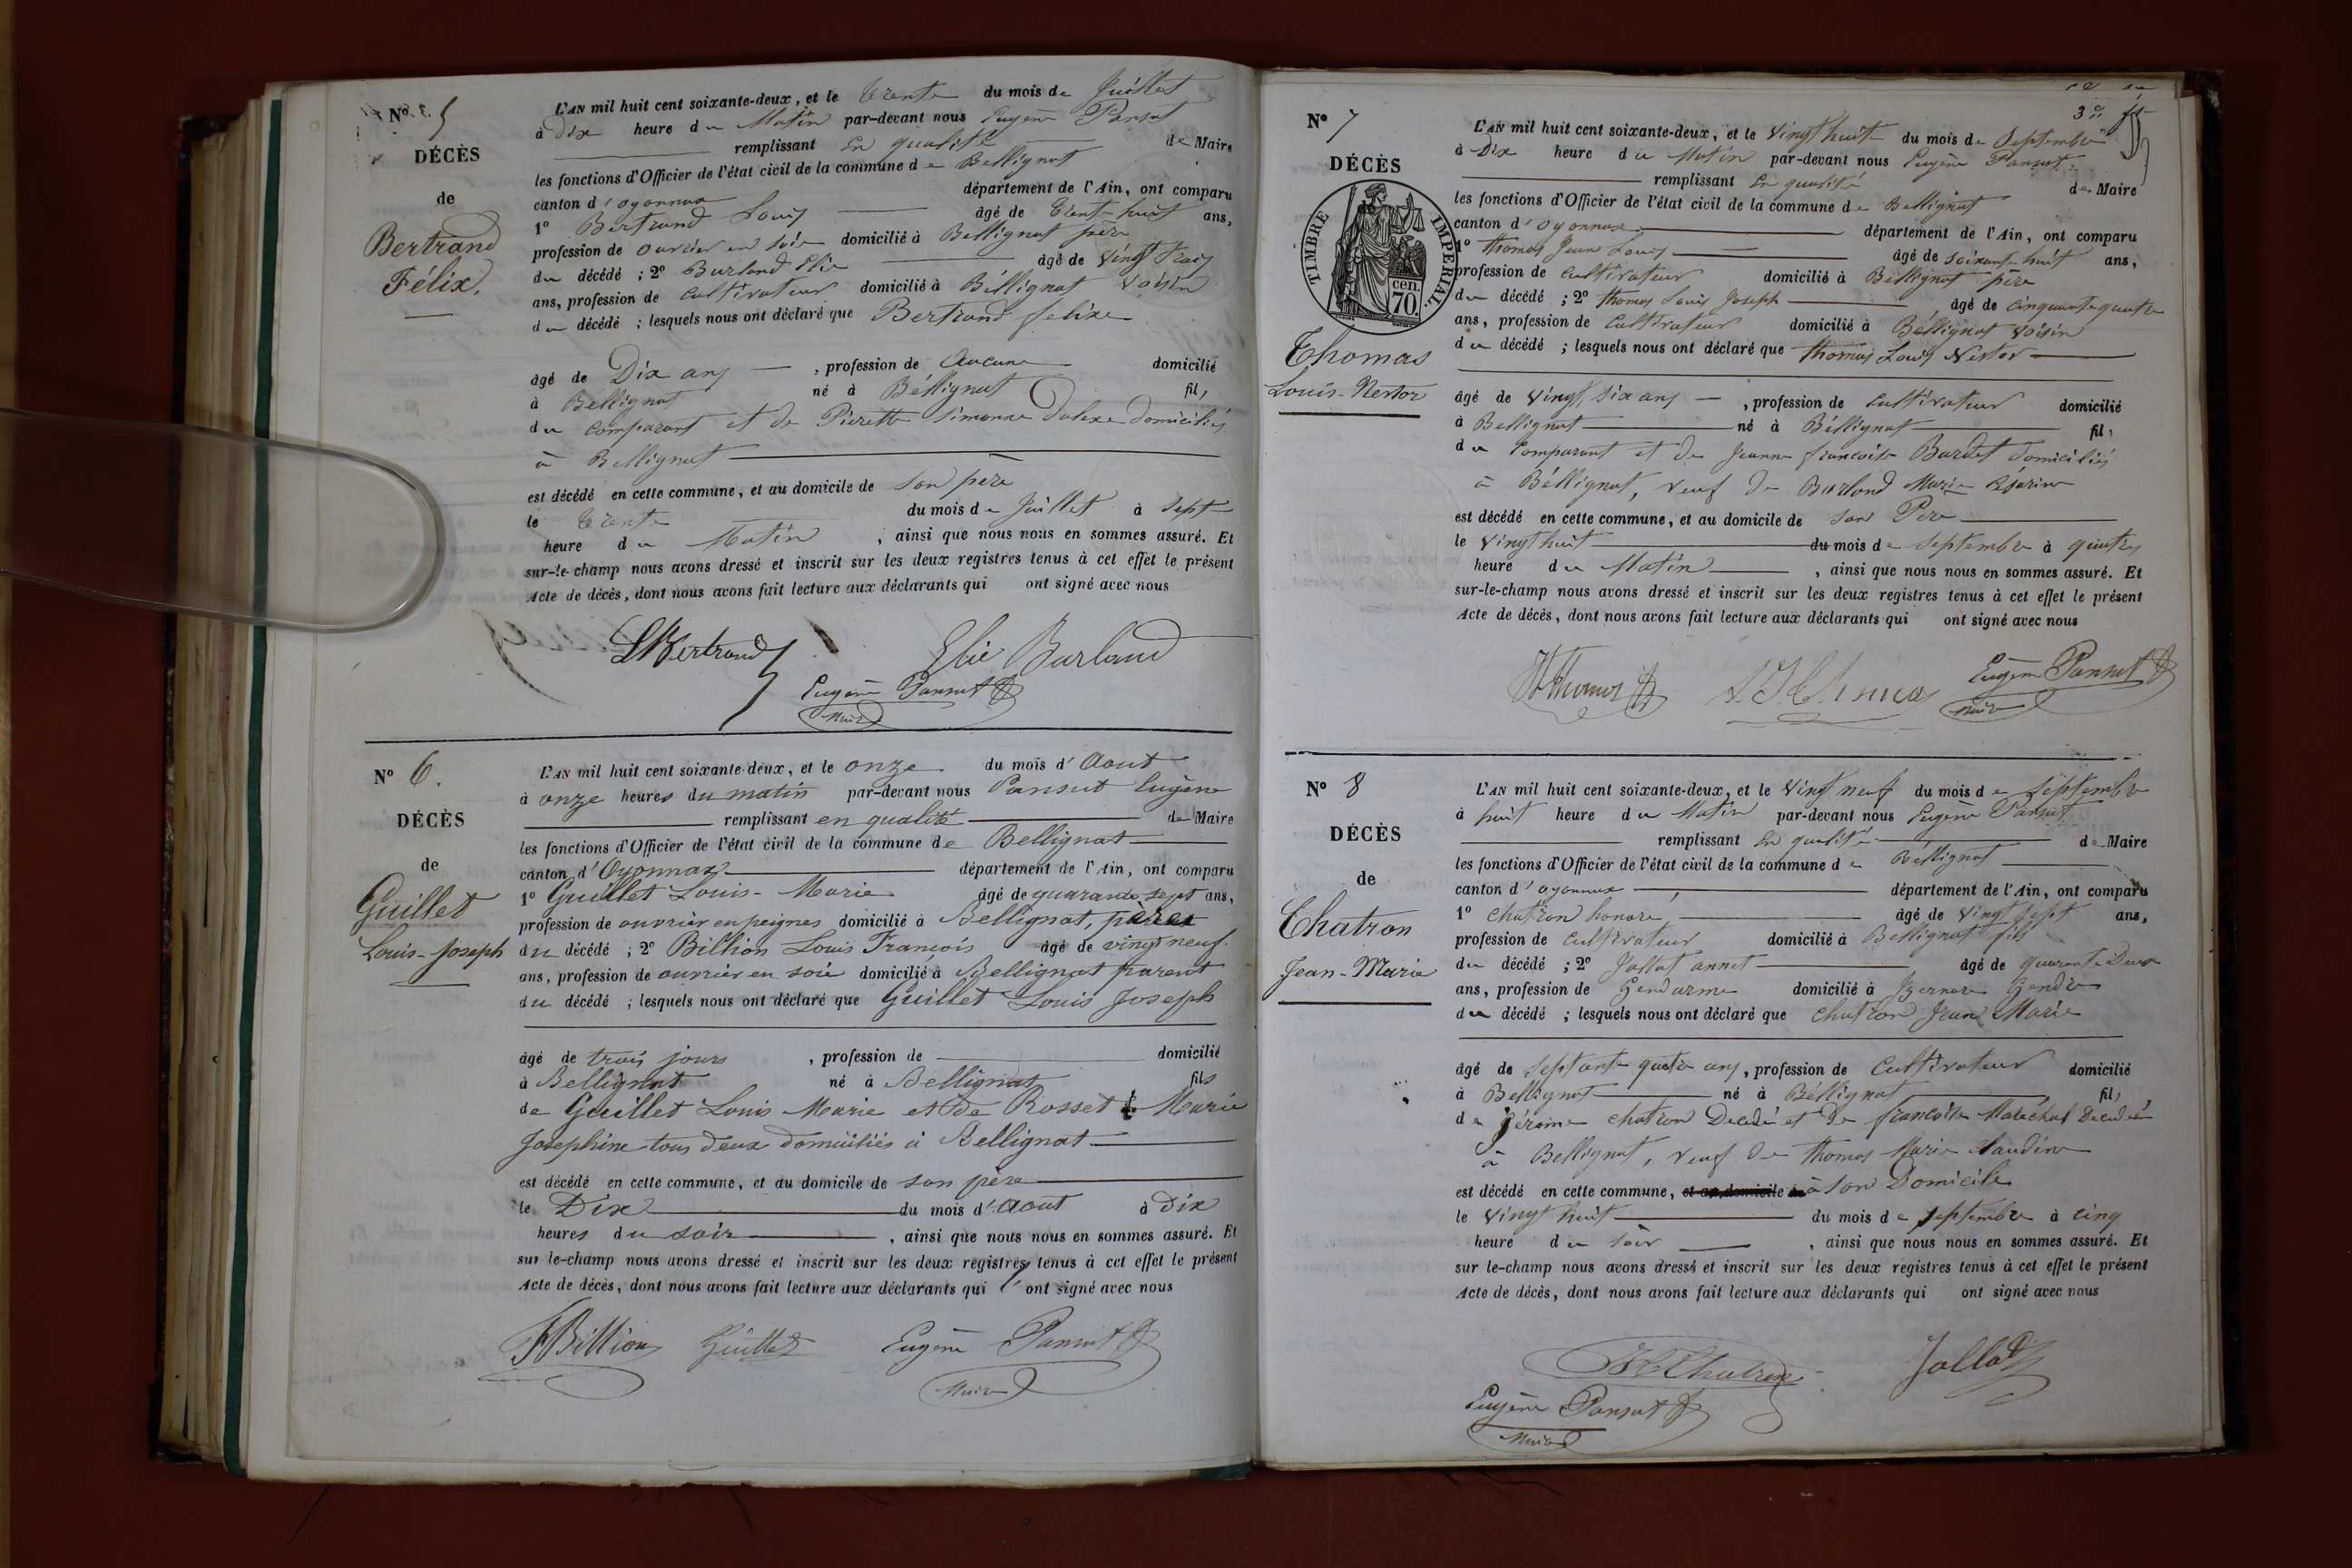 Nº 5
DÉCÈS
de
Bertrand
Félix.
L'AN mil huit cent soixante-deux, et le trente du mois de Juillet
à Dix heure du Matin par-devant nous Eugène Pansut
remplissant En qualité de Maire
les fonctions d'Officier de l'état civil de la commune de Bellignat
canton d'oyonnax département de l'Ain, ont comparu
1º Bertrand Louis âgé de trent-huit ans,
profession de ouvrier en soie domicilié à Bellignat père
du décédé ; 2º Burland Elie âgé de vingt trois
ans, profession de cultivateur domicilié à Béllignat voisin
du décédé ; lesquels nous ont déclaré que Bertrand felix
âgé de Dix ans, profession de Aucune domicilié
à Bellignat né à Béllignat fils
du comparant et de Pierette Simonne domiciliés
à Bellignat
est décédé en cette commune, et au domicile de son père
le trente du mois de Juillet à sept
heure du Matin, ainsi que nous nous en sommes assuré. Et
sur-le-champ nous avons dressé et inscrit sur les deux registres tenus à cet effet le présent
Acte de décès, dont nous avons fait lecture aux déclarants qui ont signé avec nous
LBertrand Elie Burland
Eugène Pansut
Maire
Nº 6.
DÉCÈS
de
Guillet
Louis-Joseph
L'AN mil huit cent soixante-deux, et le onze du mois d'Aout
à onze heures du matin par-devant nous Pansut Eugène
remplissant en qualité de Maire
les fonctions d'Officier de l'état civil de la commune de Bellignat
canton d'Oyonnax département de l'Ain, ont comparu
1º Guillet Louis-Marie âgé de quarante sept ans,
profession de ouvrier en peignes domicilié à Bellignat, père
du décédé ; 2º Billion Louis François âgé de vingt neuf
ans, profession de ouvrier en soie domicilié à Bellignat parent
du décédé ; lesquels nous ont déclaré que Guillet Louis Joseph
âgé de trois jours, profession de domicilié
à Bellignat né à Bellignat fils
de Guillet Louis Marie et de Rosset Marie
Josephine tous deux domiciliés à Bellignat
est décédé en cette commune, et au domicile de son père
le Dix du mois d'Aout à Dix
heures du soir, ainsi que nous nous en sommes assuré. Et
sur le-champ nous avons dressé et inscrit sur les deux registres tenus à cet effet le présent
Acte de décès, dont nous avons fait lecture aux déclarants qui ont signé avec nous
FBillion Guillet Eugène Pansut
Maire
Nº 7
DÉCÈS
TIMBRE IMPERIAL.
70. cen.
Thomas
Louis-Nestor
L'AN mil huit cent soixante-deux, et le vingt huit du mois de Septembre
à Dix heure du Matin par-devant nous Eugène Pansut
remplissant En qualité de Maire
les fonctions d'Officier de l'état civil de la commune de Bellignat
canton d'oyonnax département de l'Ain, ont comparu
1º thomas Jean Louis âgé de soixante huit ans,
profession de cultivateur domicilié à Bellignat père
du décédé ; 2º thomas Louis Joseph âgé de cinquante quatre
ans, profession de cultivateur domicilié à Béllignat voisin
du décédé ; lesquels nous ont déclaré que thomas Louis Nestor
âgé de vingt six ans, profession de cultivateur domicilié
à Bellignat né à Béllignat fils
du comparant et de Jeanne francoise Bardet domiciliés
à Béllignat, veuf de Burland Marie Césarine
est décédé en cette commune, et au domicile de son Pere
le vingt huit du mois de septembre à quatre
heure du Matin, ainsi que nous nous en sommes assuré. Et
sur-le-champ nous avons dressé et inscrit sur les deux registres tenus à cet effet le présent
Acte de décès, dont nous avons fait lecture aux déclarants qui ont signé avec nous
Thomas Eugène Pansut
Maire
Nº 8
DÉCÈS
de
Chatron
Jean-Marie
L'AN mil huit cent soixante-deux, et le vingt neuf du mois de septembre
à huit heure du Matin par-devant nous Eugène Pansut
remplissant En qualité de Maire
les fonctions d'Officier de l'état civil de la commune de Béllignat
canton d'oyonnax département de l'Ain, ont comparu
1º chatron honoré, âgé de vingt sept ans,
profession de cultivateur domicilié à Bellignat fils
du décédé ; 2º Jallat annet âgé de quarante Deux
ans, profession de Gendarme domicilié à Izernore Gendre
du décédé ; lesquels nous ont déclaré que chatron Jean Marie
âgé de septante quatre ans, profession de cultivateur domicilié
à Bellignat né à Béllignat fils
de Jérome chatron Décédé et de francoise Maréchal Décédée
à Bellignat, veuf de thomas Marie Claudine
est décédé en cette commune, et au domicile de à son Domicile
le vingt huit du mois de septembre à cinq
heure du soir, ainsi que nous nous en sommes assuré. Et
sur le-champ nous avons dressé et inscrit sur les deux registres tenus à cet effet le présent
Acte de décès, dont nous avons fait lecture aux déclarants qui ont signé avec nous
Chatron Jallat
Eugène Pansut
Maire